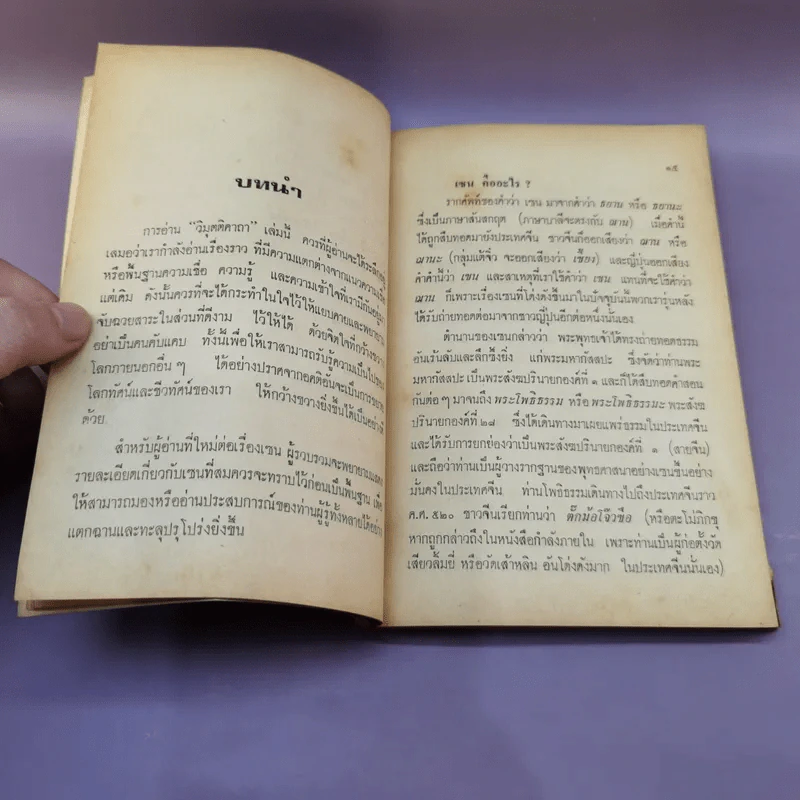 บทนำ
การอ่าน “วิมุตติคาถา” เล่มนี้ ควรที่ผู้อ่านจะได้ระลึกอยู่
เสมอว่าเรากำลังอ่านเรื่องราว ที่มีความแตกต่างจากแนวความคิด
หรือพื้นฐานความเชื่อ ความรู้ และความเข้าใจที่เรามีกันอยู่
แต่เดิม ดังนั้นควรที่จะได้กระทำในใจไว้ให้แยบคายและพยายาม
จับฉวยสาระในส่วนที่ดีงาม ไว้ให้ได้ ด้วยจิตใจที่กว้างขวาง
อย่าเป็นคนคับแคบ ทั้งนี้เพื่อให้เราสามารถรับรู้ความเป็นไปของ
โลกภายนอกอื่น ๆ ได้อย่างปราศจากอคติอันจะเป็นการขยาย
โลกทัศน์และชีวทัศน์ของเรา ให้กว้างขวางยิ่งขึ้นได้เป็นอย่างดี
ด้วย
สำหรับผู้อ่านที่ใหม่ต่อเรื่องเซน ผู้รวบรวมจะพยายามแสดง
รายละเอียดเกี่ยวกับเซนที่สมควรจะทราบไว้ก่อนเป็นพื้นฐาน เพื่อ
ให้สามารถมองหรืออ่านประสบการณ์ของท่านผู้รู้ทั้งหลายได้อย่าง
แตกฉานและทะลุปรุโปร่งยิ่งขึ้น
๑๕
เซน คืออะไร ?
รากศัพท์ของคำว่า เซน มาจากคำว่า ธยาน หรือ ธยานะ
ซึ่งเป็นภาษาสันสกฤต (ภาษาบาลีจะตรงกับ ฌาน) เมื่อคำนี้
ได้ถูกสืบทอดมายังประเทศจีน ชาวจีนก็ออกเสียงว่า ฌาน หรือ
ฌานะ (กลุ่มแต้จิ๋ว จะออกเสียงว่า เซี้ยง) และญี่ปุ่นออกเสียง
คำคำนี้ว่า เซน และสาเหตุที่เราใช้คำว่า เซน แทนที่จะใช้คำว่า
ฌาน ก็เพราะเรื่องเซนที่โด่งดังขึ้นมาในปัจจุบันนี้พวกเรารุ่นหลัง
ได้รับถ่ายทอดต่อมาจากชาวญี่ปุ่นอีกต่อหนึ่งนั้นเอง
ตำนานของเซนกล่าวว่า พระพุทธเจ้าได้ทรงถ่ายทอดธรรม
อันเร้นลับและลึกซึ้งยิ่ง แก่พระมหากัสสปะ ซึ่งจัดว่าท่านพระ
มหากัสสปะเป็นพระสังฆปรินายกองค์ที่ ๑ และก็ได้สืบทอดคำสอน
กันต่อ ๆ มาจนถึง พระโพธิธรรม หรือ พระโพธิธรรมะ พระสังฆ
ปรินายกองค์ที่ ๒๘ ซึ่งได้เดินทางมาเผยแพร่ธรรมในประเทศจีน
และได้รับการยกย่องว่าเป็นพระสังฆปรินายกองค์ที่ ๑ (สายจีน)
และถือว่าท่านเป็นผู้วางรากฐานของพุทธศาสนาอย่างเซนขึ้นอย่าง
มั่นคงในประเทศจีน ท่านโพธิธรรมเดินทางไปถึงประเทศจีนราว
ค.ศ. ๕๒๐ ชาวจีนเรียกท่านว่า ตั๊กม้อโจ๊วซือ (หรือตะโม่ภิกขุ
หากถูกกล่าวถึงในหนังสือกำลังภายใน เพราะท่านเป็นผู้ก่อตั้งวัด
เสียวลิ้มยี่ หรือวัดเส้าหลิน อันโด่งดังมาก ในประเทศจีนนั้นเอง)